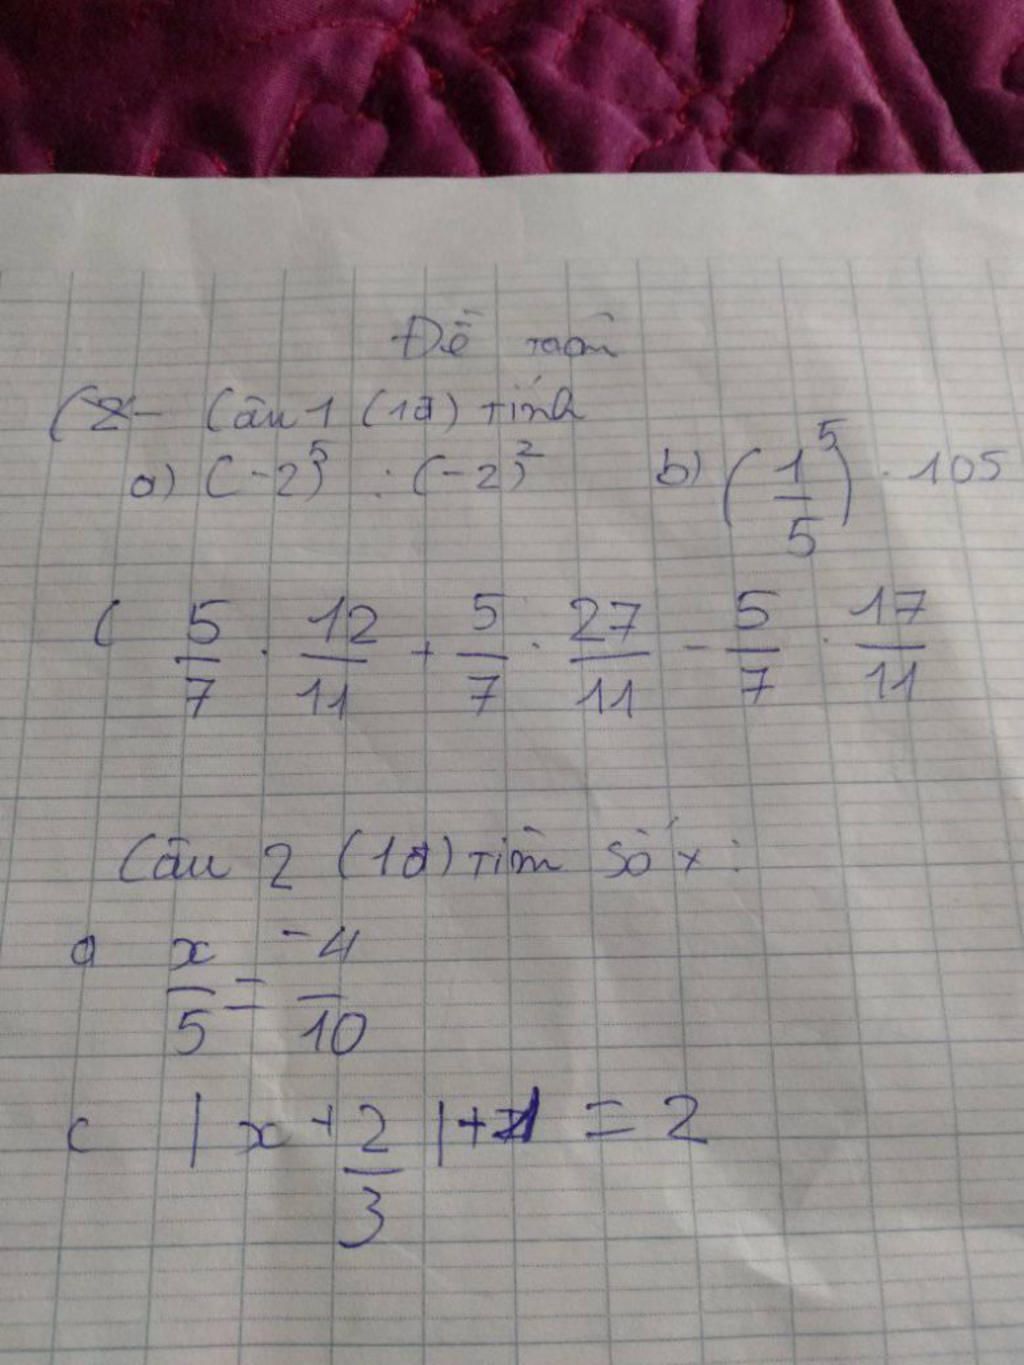 Đề toán
Câu 1 (1đ) tính
a) (-2)⁵ : (-2)² b) (1⁵/5) . 105
C 5/7 . 12/11 + 5/7 . 27/11 - 5/7 . 17/11
Câu 2 (1đ) tìm số x:
a x/5 = -4/10
c |x + 2/3| + 1 = 2